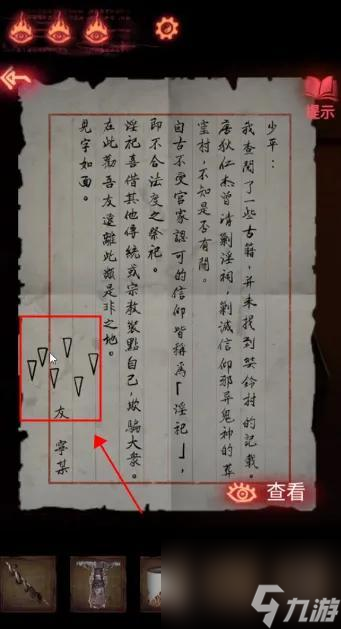 少平：
我查閱了一些古籍，並未找到哭鈴村的記載。
唐狄仁杰曾清剿淫祠，剿滅信仰邪異鬼神的草
蛮村，不知是否有關。
自古不受官家認可的信仰皆稱爲「淫祀」，
即不合法度之祭祀。
淫祀喜借其他傳統或宗教裝點自己，欺騙大衆。
在此勸吾友遠離此類是非之地。
見字如面。
友 寧某
提示
查看
九游